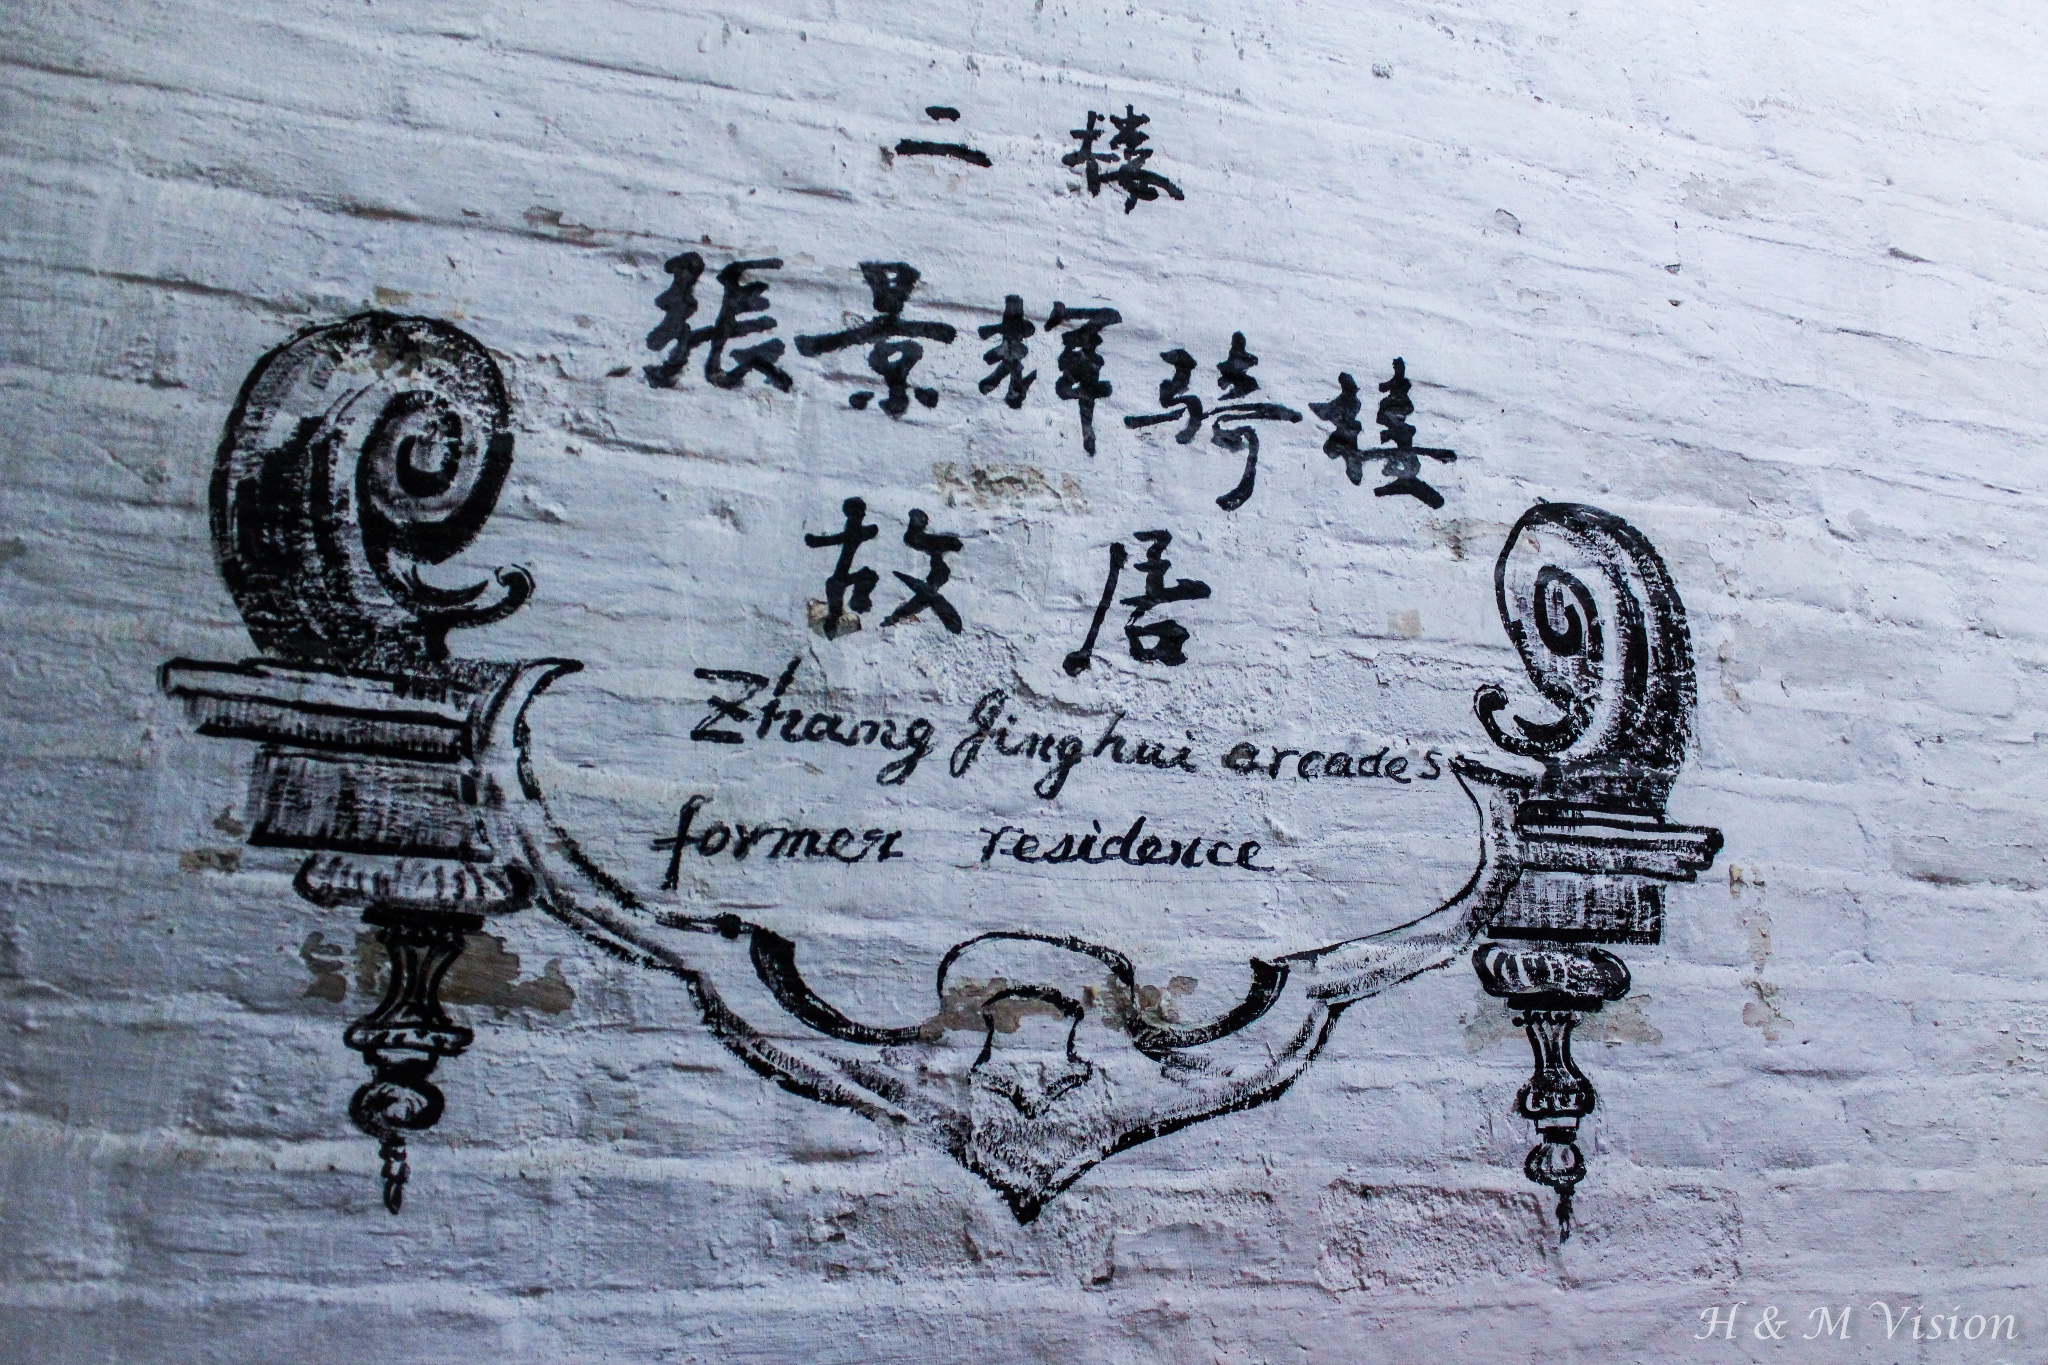 二楼
張景輝骑楼
故居
Zhang Jinghui arcades
former residence
H & M Vision